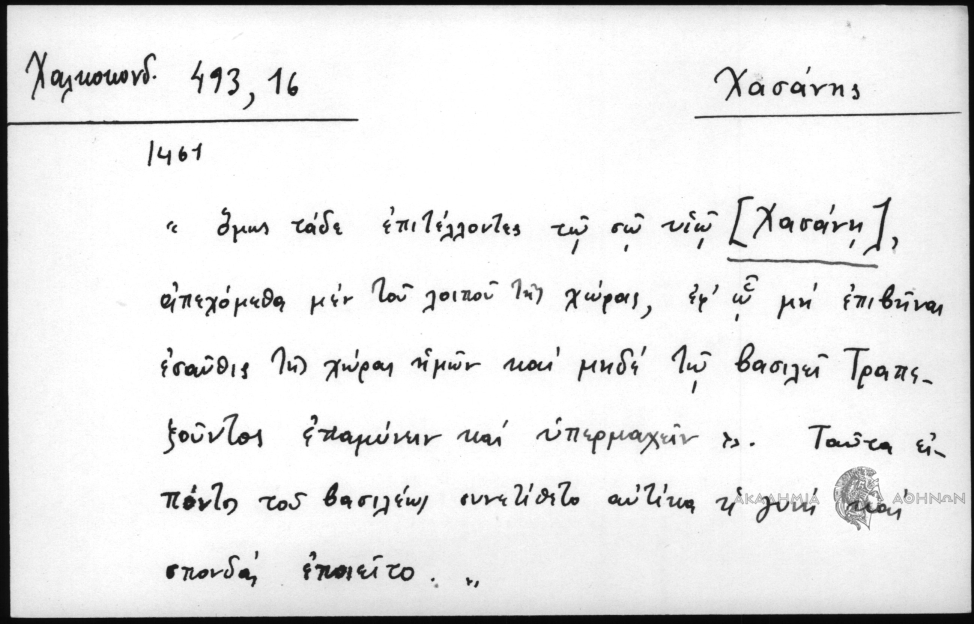 Χαλκοκονδ. 493, 16
Χασάνης
1461
« ὅμως τάδε ἐπιτέλλοντες τῷ σῷ υἱῷ [Χασάνῃ],
ἀπεχόμεθα μέν τοῦ λοιποῦ τῆς χώρας, ἐφ' ᾧ μή ἐπιβῆναι
ἐσαῦθις τῆς χώρας ἡμῶν καί μηδέ τῷ βασιλεῖ Τραπε-
ζοῦντος ἐπαμύνειν καί ὑπερμαχεῖν ». Ταῦτα εἰ-
πόντος τοῦ βασιλέως συνετίθετο αὐτίκα ἡ γυνή καί
σπονδάς ἐποιεῖτο. »
ΑΚΑΔΗΜΙΑ ΑΘΗΝΩΝ